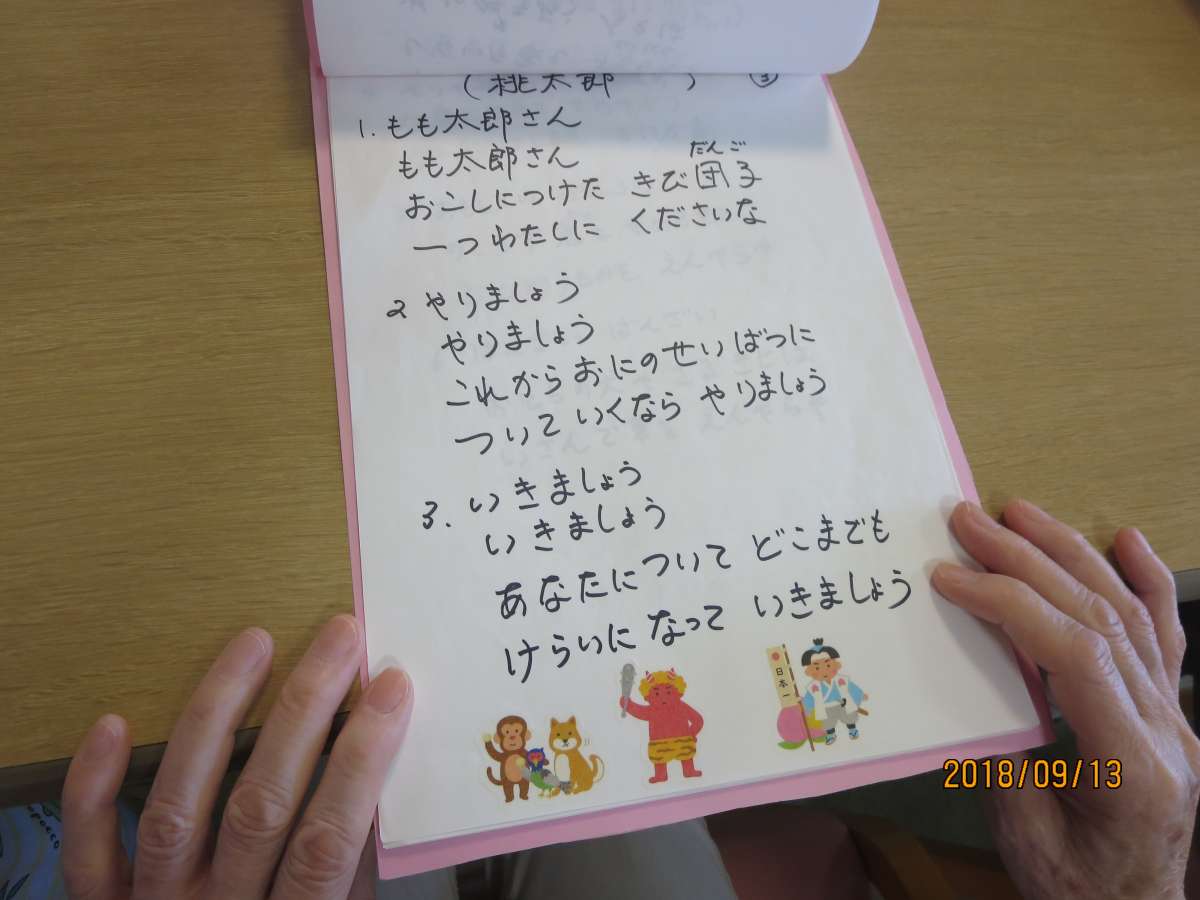 (桃太郎) ③
1. もも太郎さん
もも太郎さん
だんご
おこしにつけた きび団子
一つわたしに くださいな
2 やりましょう
やりましょう
これから おにのせいばつに
ついて いくなら やりましょう
3. いきましょう
いきましょう
あなたに ついて どこまでも
けらいに なって いきましょう
日本一
2018/09/13